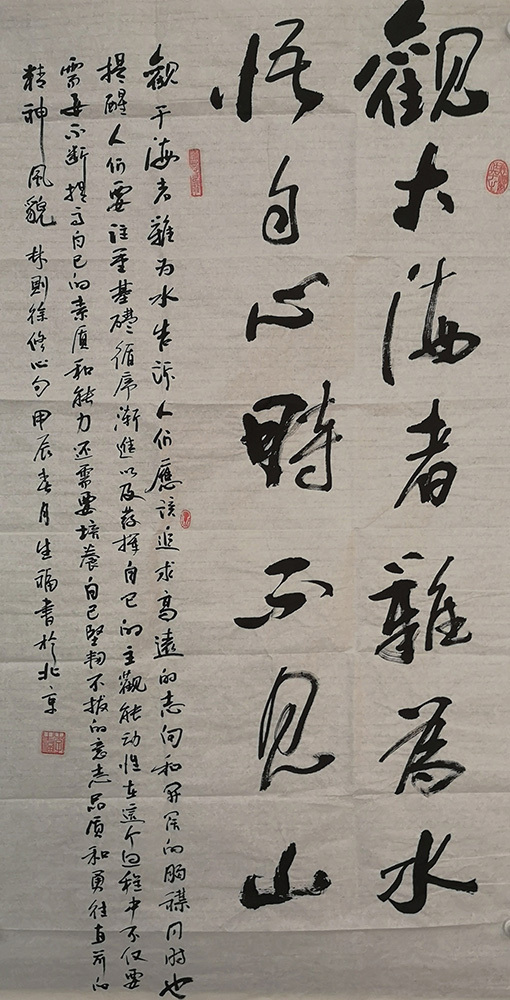 觀大海者難為水
悟自心時不見山
觀于海者難为水告訴人们應该追求高遠的志向和开阔的胸襟同时也
提醒人们要注重基礎循序漸進以及發揮自己的主觀能动性在這个过程中不仅要
需要不断提高自己的素质和能力还需要培養自己堅韧不拔的意志品质和勇往直前的
精神風貌 林則徐修心句甲辰春月生福書於北京